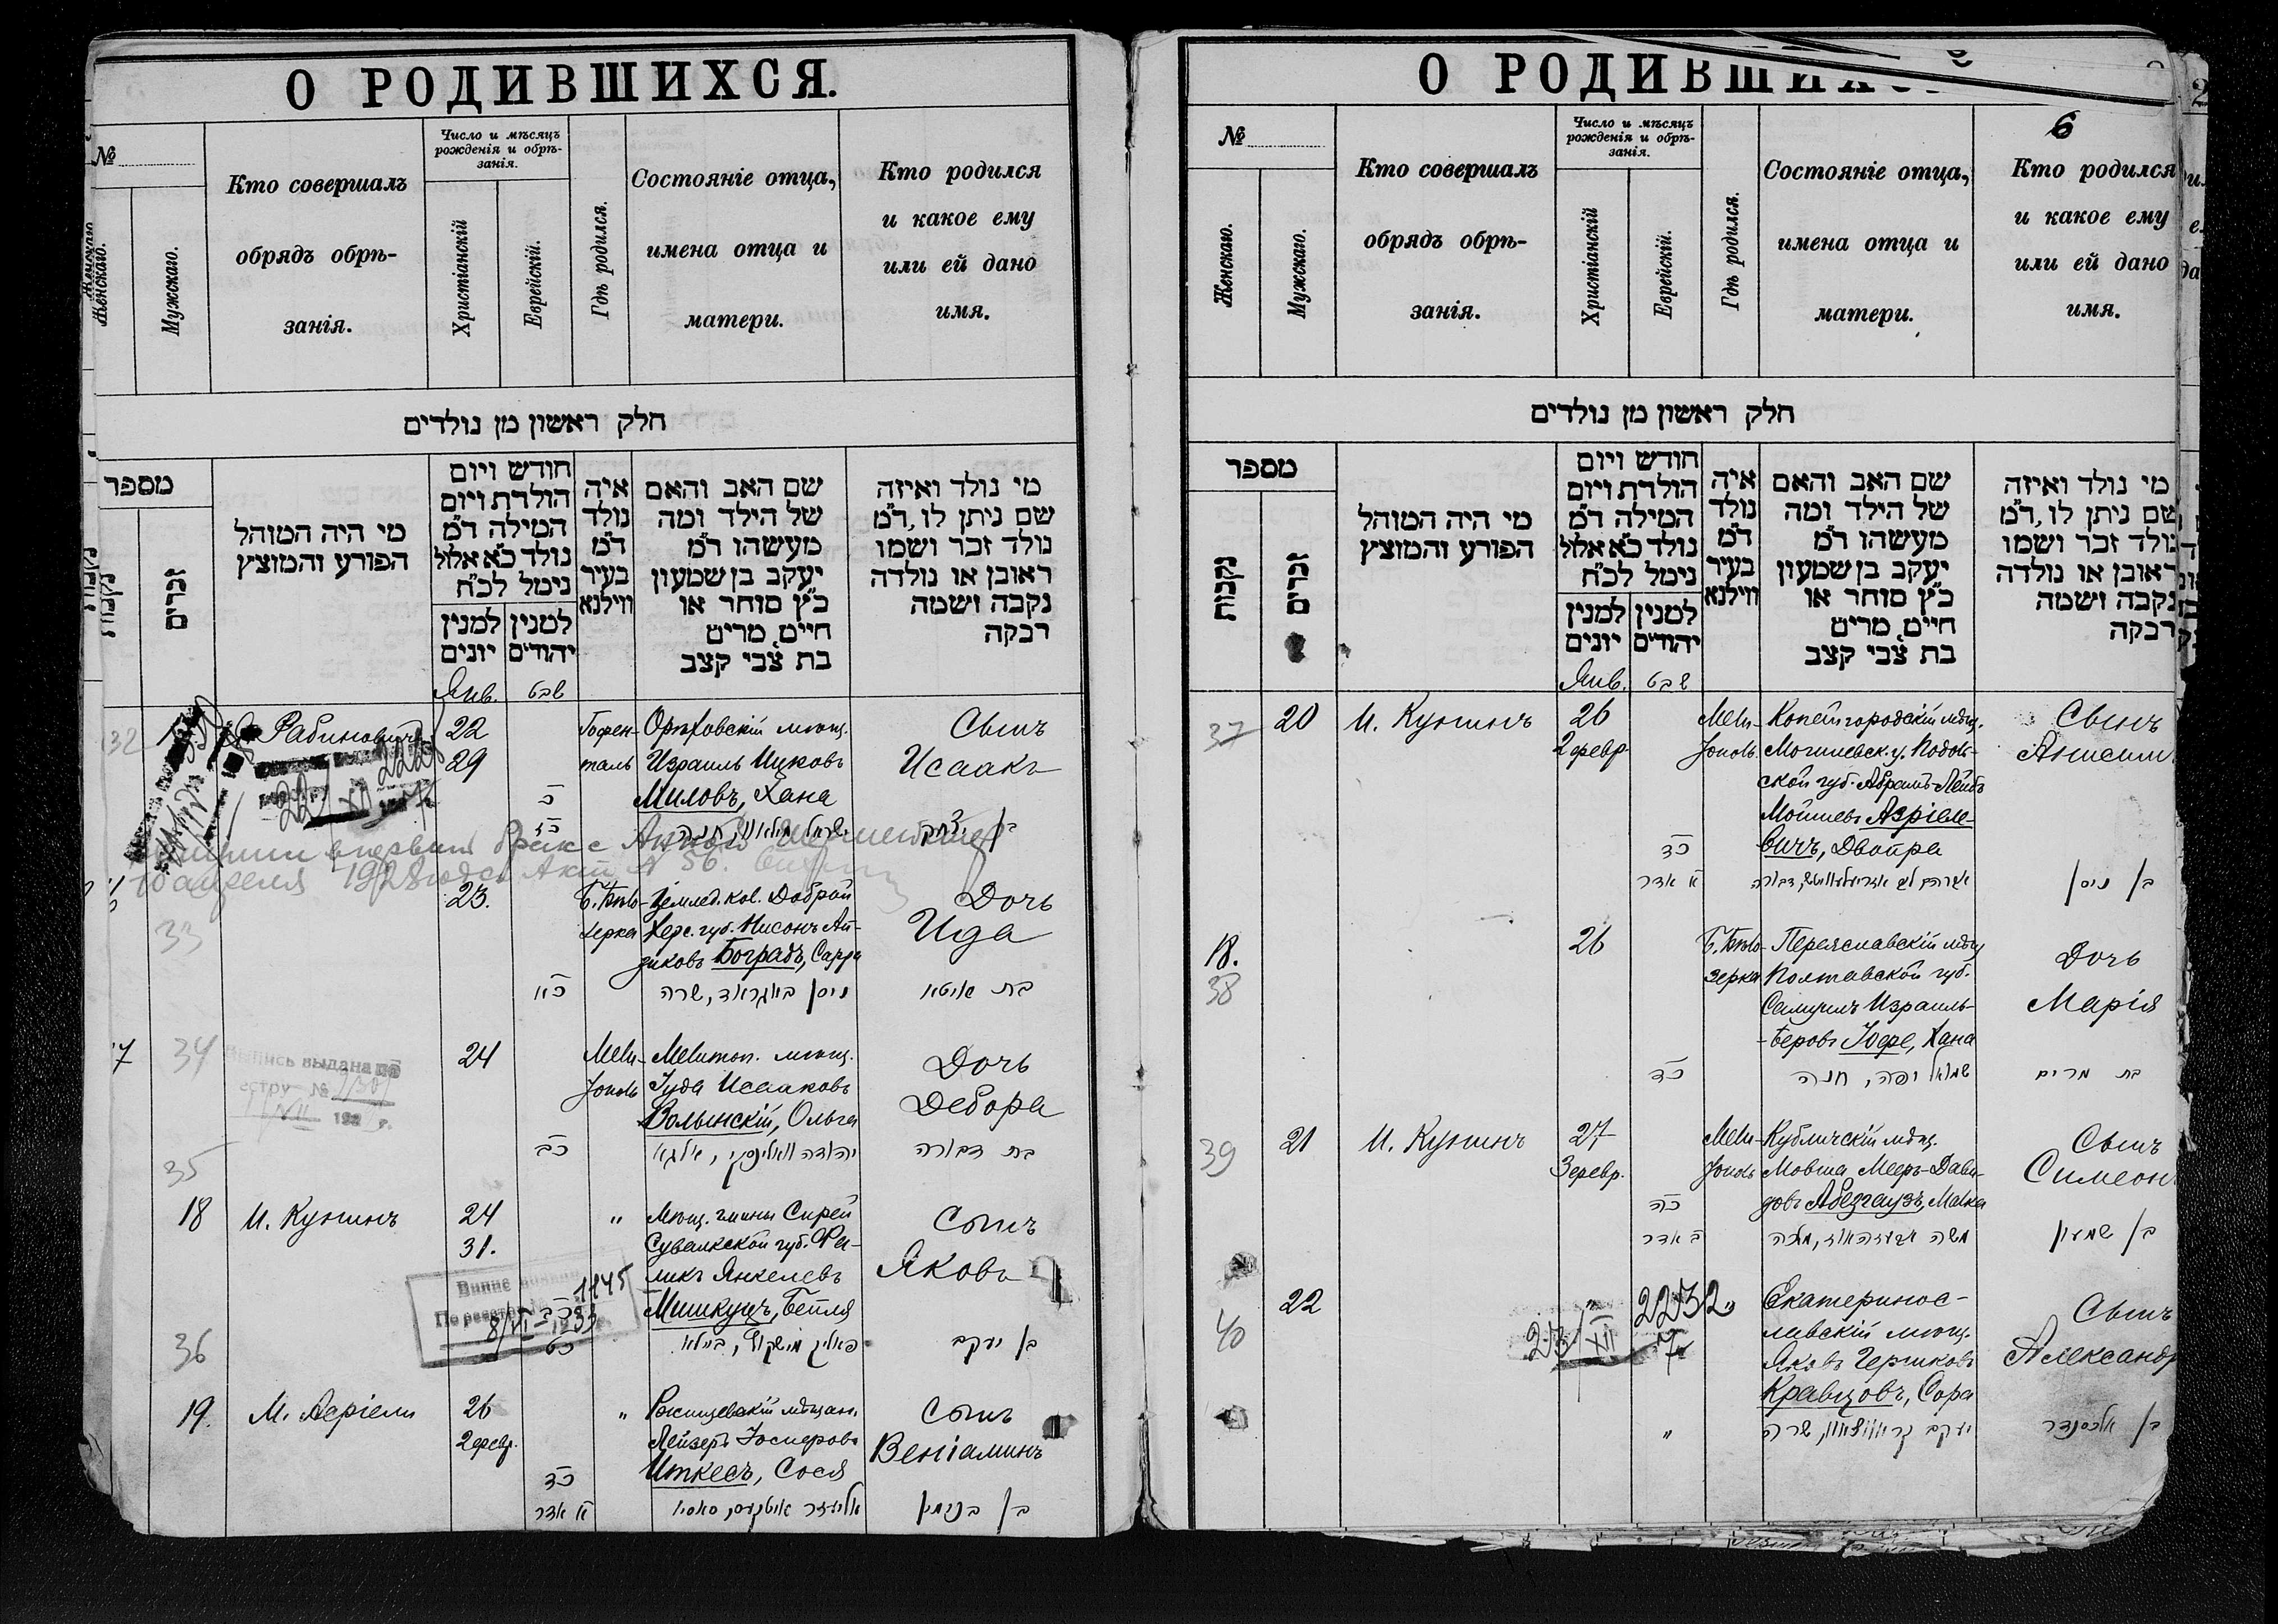 О РОДИВШИХСЯ.
№
Женскаго.
Мужскаго.
Кто совершалъ
обрядъ обрѣ-
занія.
Число и мѣсяцъ
рожденія и обрѣ-
занія.
Христіанскій
Еврейскій.
Гдѣ родился.
Состояніе отца,
имена отца и
матери.
Кто родился
и какое ему
или ей дано
имя.
חלק ראשון מן נולדים
מספר
נקבות
זכרים
מי היה המוהל
הפורע והמוצץ
חודש ויום
הולדת ויום
המילה ד״מ
נולד כ״א אלול
נימל לכ״ח
למנין
יונים
למנין
יהודים
איה
נולד
ד״מ
בעיר
ווילנא
שם האב והאם
של הילד ומה
מעשהו ד״מ
יעקב בן שמעון
כ״ץ סוחר או
חיים, מרים
בת צבי קצב
מי נולד ואיזה
שם ניתן לו, ד״מ
נולד זכר ושמו
ראובן או נולדה
נקבה ושמה
רבקה
Янв. שבט
32 Рабиновичъ 22 Гофен- Орѣховскій мѣщ. Сынъ
29 таль Израиль Ицковъ Исаакъ
Миловъ, Хана
10 апреля 1928 года Акт № 56.
23. Б. Бѣло- Землед. кол. Доброй Дочь
33 зерка Херс. губ. Нисонъ Ай- Ида
зиковъ Боградъ, Сарра
כא ניסן באגראד, שרה בת איטא
7 34 24 Мели- Мелитоп. мѣщ. Дочь
Выпись выдана по
естру №
тополь Іуда Исааковъ Дебора
Волынскій, Ольга
כב יהודה וואלינסקי, אלגא בת דבורה
35
18 И. Кунинъ 24 " Мѣщ. гмины Сирей Сынъ
31. Сувалкской губ. Фа- Яковъ
ликъ Янкелевъ
1145
8/VI 1933
Мишкуцъ, Бейля
36 כט בן יעקב
19. М. Азріели 26 " мѣщан. Сынъ
2 февр. Лейзеръ Веніаминъ
כד Иткесъ, Сося
א אדר אליעזר איטקעס, סאסיא בן בנימין
О РОДИВШИХ
6
№
Женскаго.
Мужскаго.
Кто совершалъ
обрядъ обрѣ-
занія.
Число и мѣсяцъ
рожденія и обрѣ-
занія.
Христіанскій
Еврейскій.
Гдѣ родился.
Состояніе отца,
имена отца и
матери.
Кто родился
и какое ему
или ей дано
имя.
חלק ראשון מן נולדים
מספר
נקבות
זכרים
מי היה המוהל
הפורע והמוצץ
חודש ויום
הולדת ויום
המילה ד״מ
נולד כ״א אלול
נימל לכ״ח
למנין
יונים
למנין
יהודים
איה
נולד
ד״מ
בעיר
ווילנא
שם האב והאם
של הילד ומה
מעשהו ד״מ
יעקב בן שמעון
כ״ץ סוחר או
חיים, מרים
בת צבי קצב
מי נולד ואיזה
שם ניתן לו, ד״מ
נולד זכר ושמו
ראובן או נולדה
נקבה ושמה
רבקה
Янв. שבט
37 20 И. Кунинъ 26 Мели- Копайгородскій мѣщ. Сынъ
2 февр. тополь Могилевск. у. Подоль-
ской губ. Абрамъ-Лейбъ
Мойшевъ Азріеле-
כד вичъ, Двойра
א אדר בן ניסן
18. 26 Б. Бѣло- Переяславскій мѣщ. Дочь
38 зерка Полтавской губ. Марія
Самуилъ Израиль-
-Беровъ Іофе, Хана
כד שמואל יפה, חנה בת מרים
39 21 И. Кунинъ 27 Мели- Кубличскій мѣщ. Сынъ
3 февр. тополь Мовша Мееръ-Дави- Симеон
כה довъ Абезгаузъ, Малка
ב אדר משה אבעזהאוז, מלכה בן שמעון
22 2232 " Екатеринос- Сынъ
40 23/XII 7 лавскій мѣщ. Александр
Яковъ Гершковъ
Кравцовъ, Сора
" יעקב קראווצאוו, שרה בן אלכסנדר